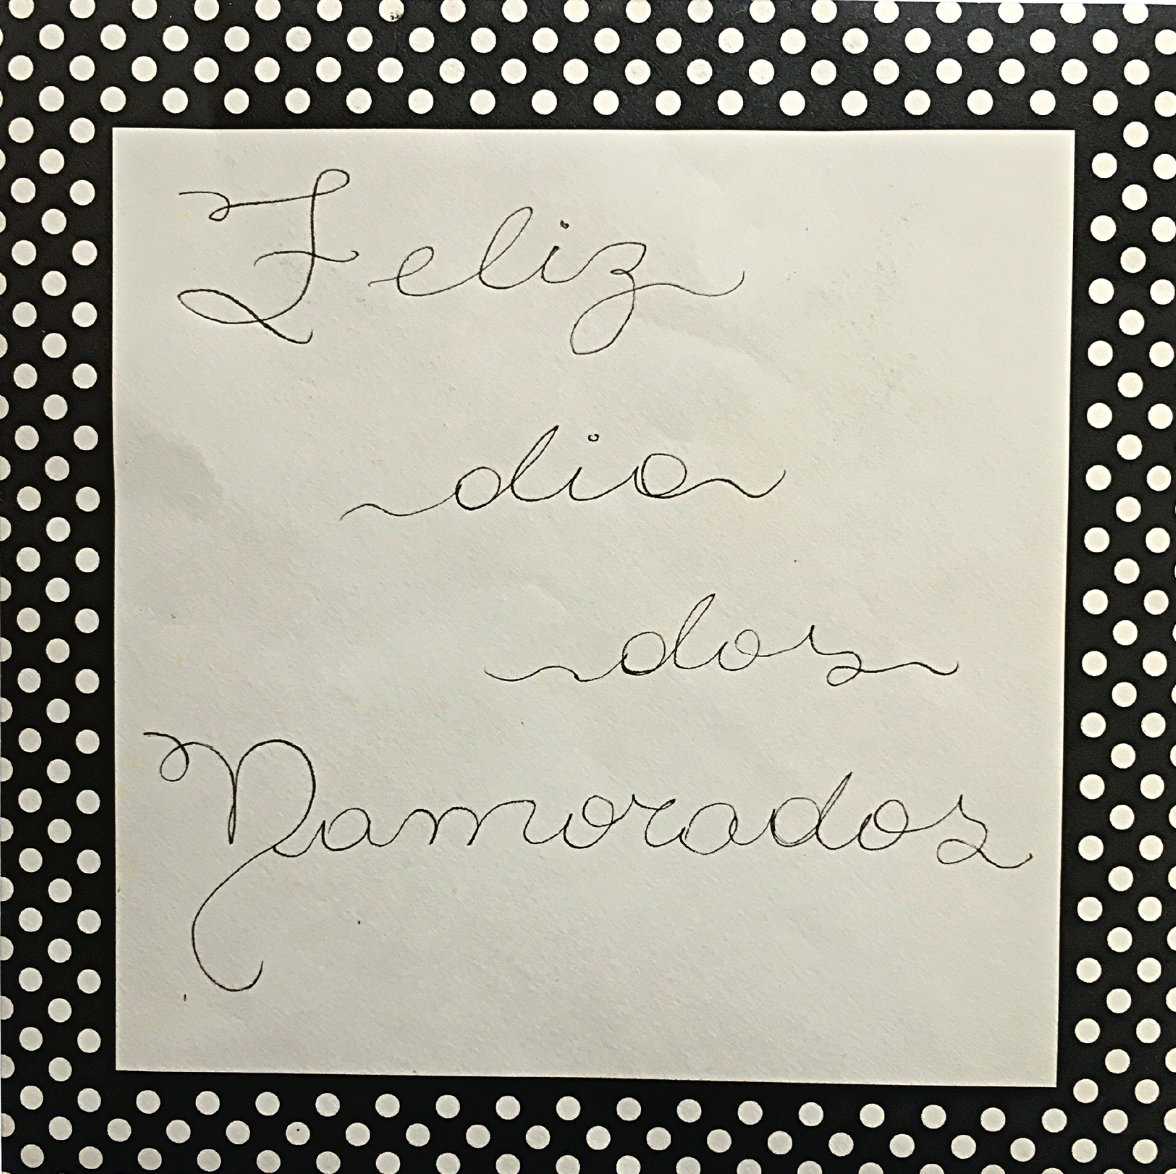 Feliz
dia
dos
Namorados